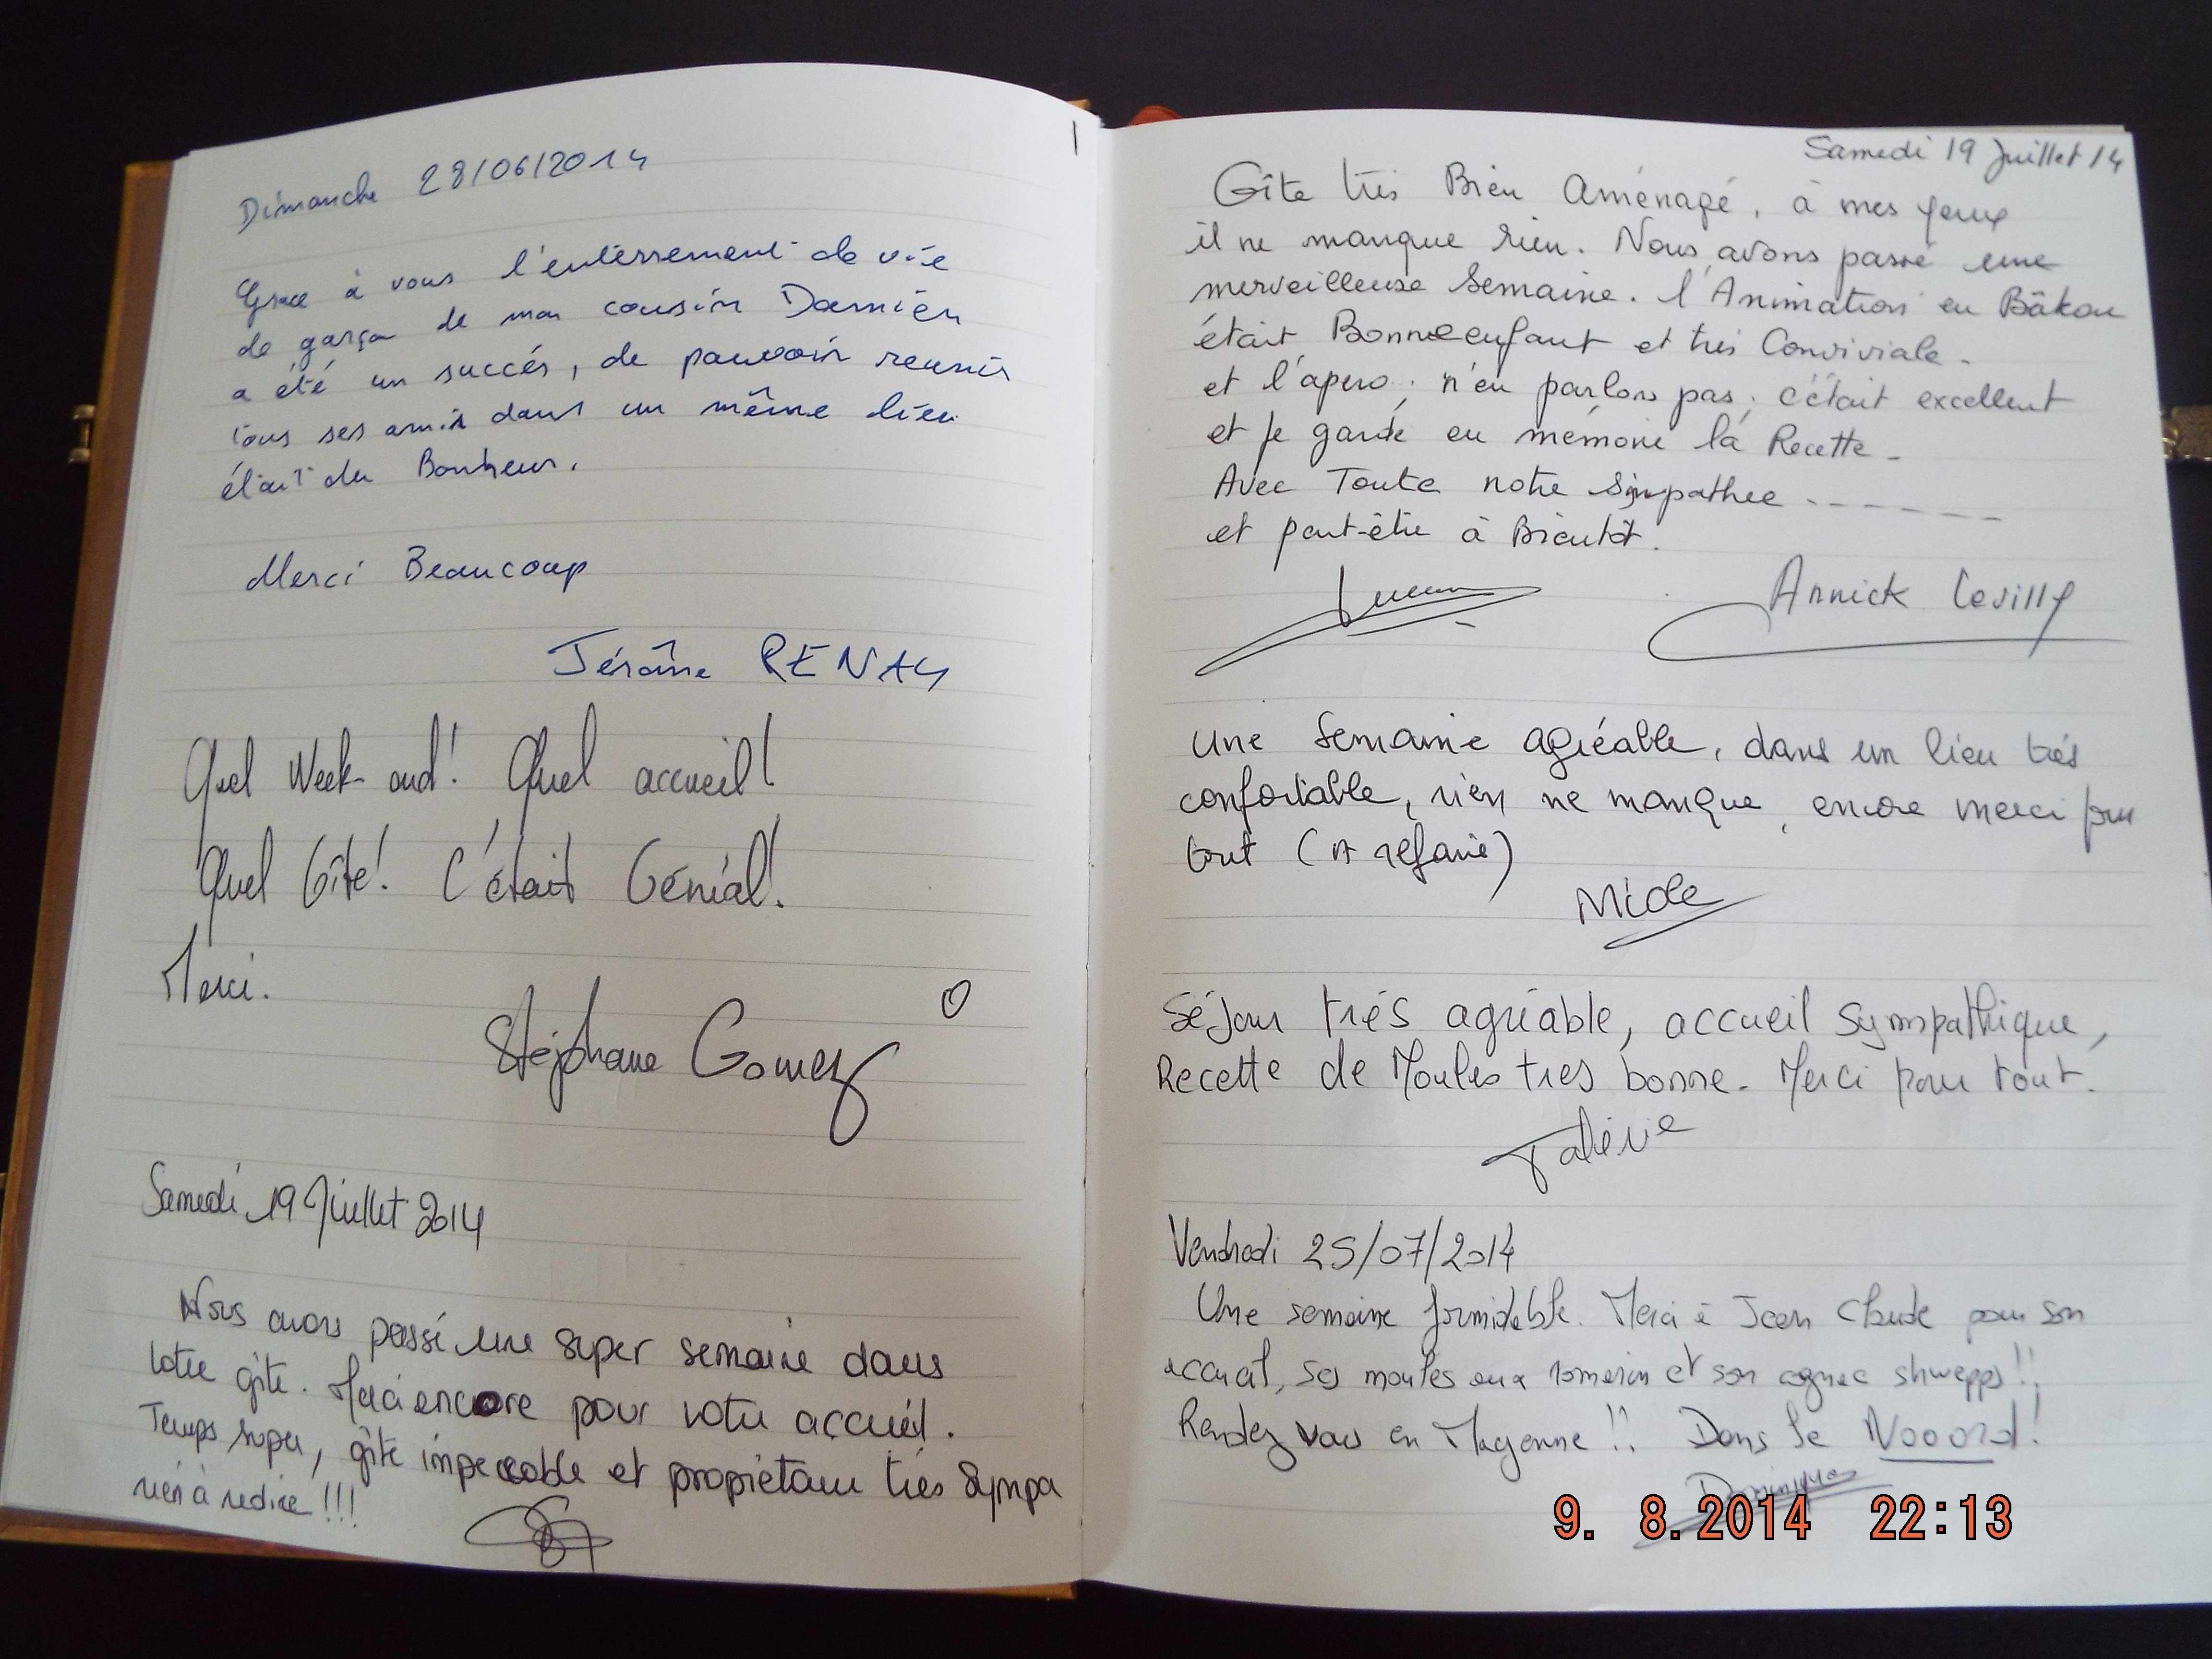 Dimanche 28/06/2014
Grace à vous l'enterrement de vie
de garçon de mon cousin Damien
a été un succés, de pouvoir reunir
tous ses amis dans un même lieu
était du Bonheur.
Merci Beaucoup
Jérôme RENAY
Quel Week-end! Quel accueil!
Quel Gîte! C'était Génial!
Merci.
Stéphane Gomez
Samedi 19 Juillet 2014
Nous avons passé une super semaine dans
votre gîte. Merci encore pour votre accueil.
Temps super, gîte impeccable et propiétaire très sympa
rien à redire!!!
Samedi 19 Juillet 14
Gîte très Bien Aménagé, à mes yeux
il ne manque rien. Nous avons passé une
merveilleuse Semaine. l'Animation en
était Bonne enfant et très Conviviale.
et l'apero, n'en parlons pas, c'était excellent
et je garde en mémoire la Recette.
Avec Toute notre Sympathee ------
et peut-être à Bientôt.
Annick
Une semaine agréable, dans un lieu très
confortable, rien ne manque, encore merci pour
tout (A refaire)
Séjour très agréable, accueil sympathique,
Recette de Moules tres bonne. Merci pour tout.
Valérie
Vendredi 25/07/2014
Une semaine formidable. Merci à Jean Claude pour son
accueil, ses moules aux romarin et son cognac shwepps!!
Rendez vous en Mayenne!! Dans le Nooord!
Dominique
9. 8.2014 22:13